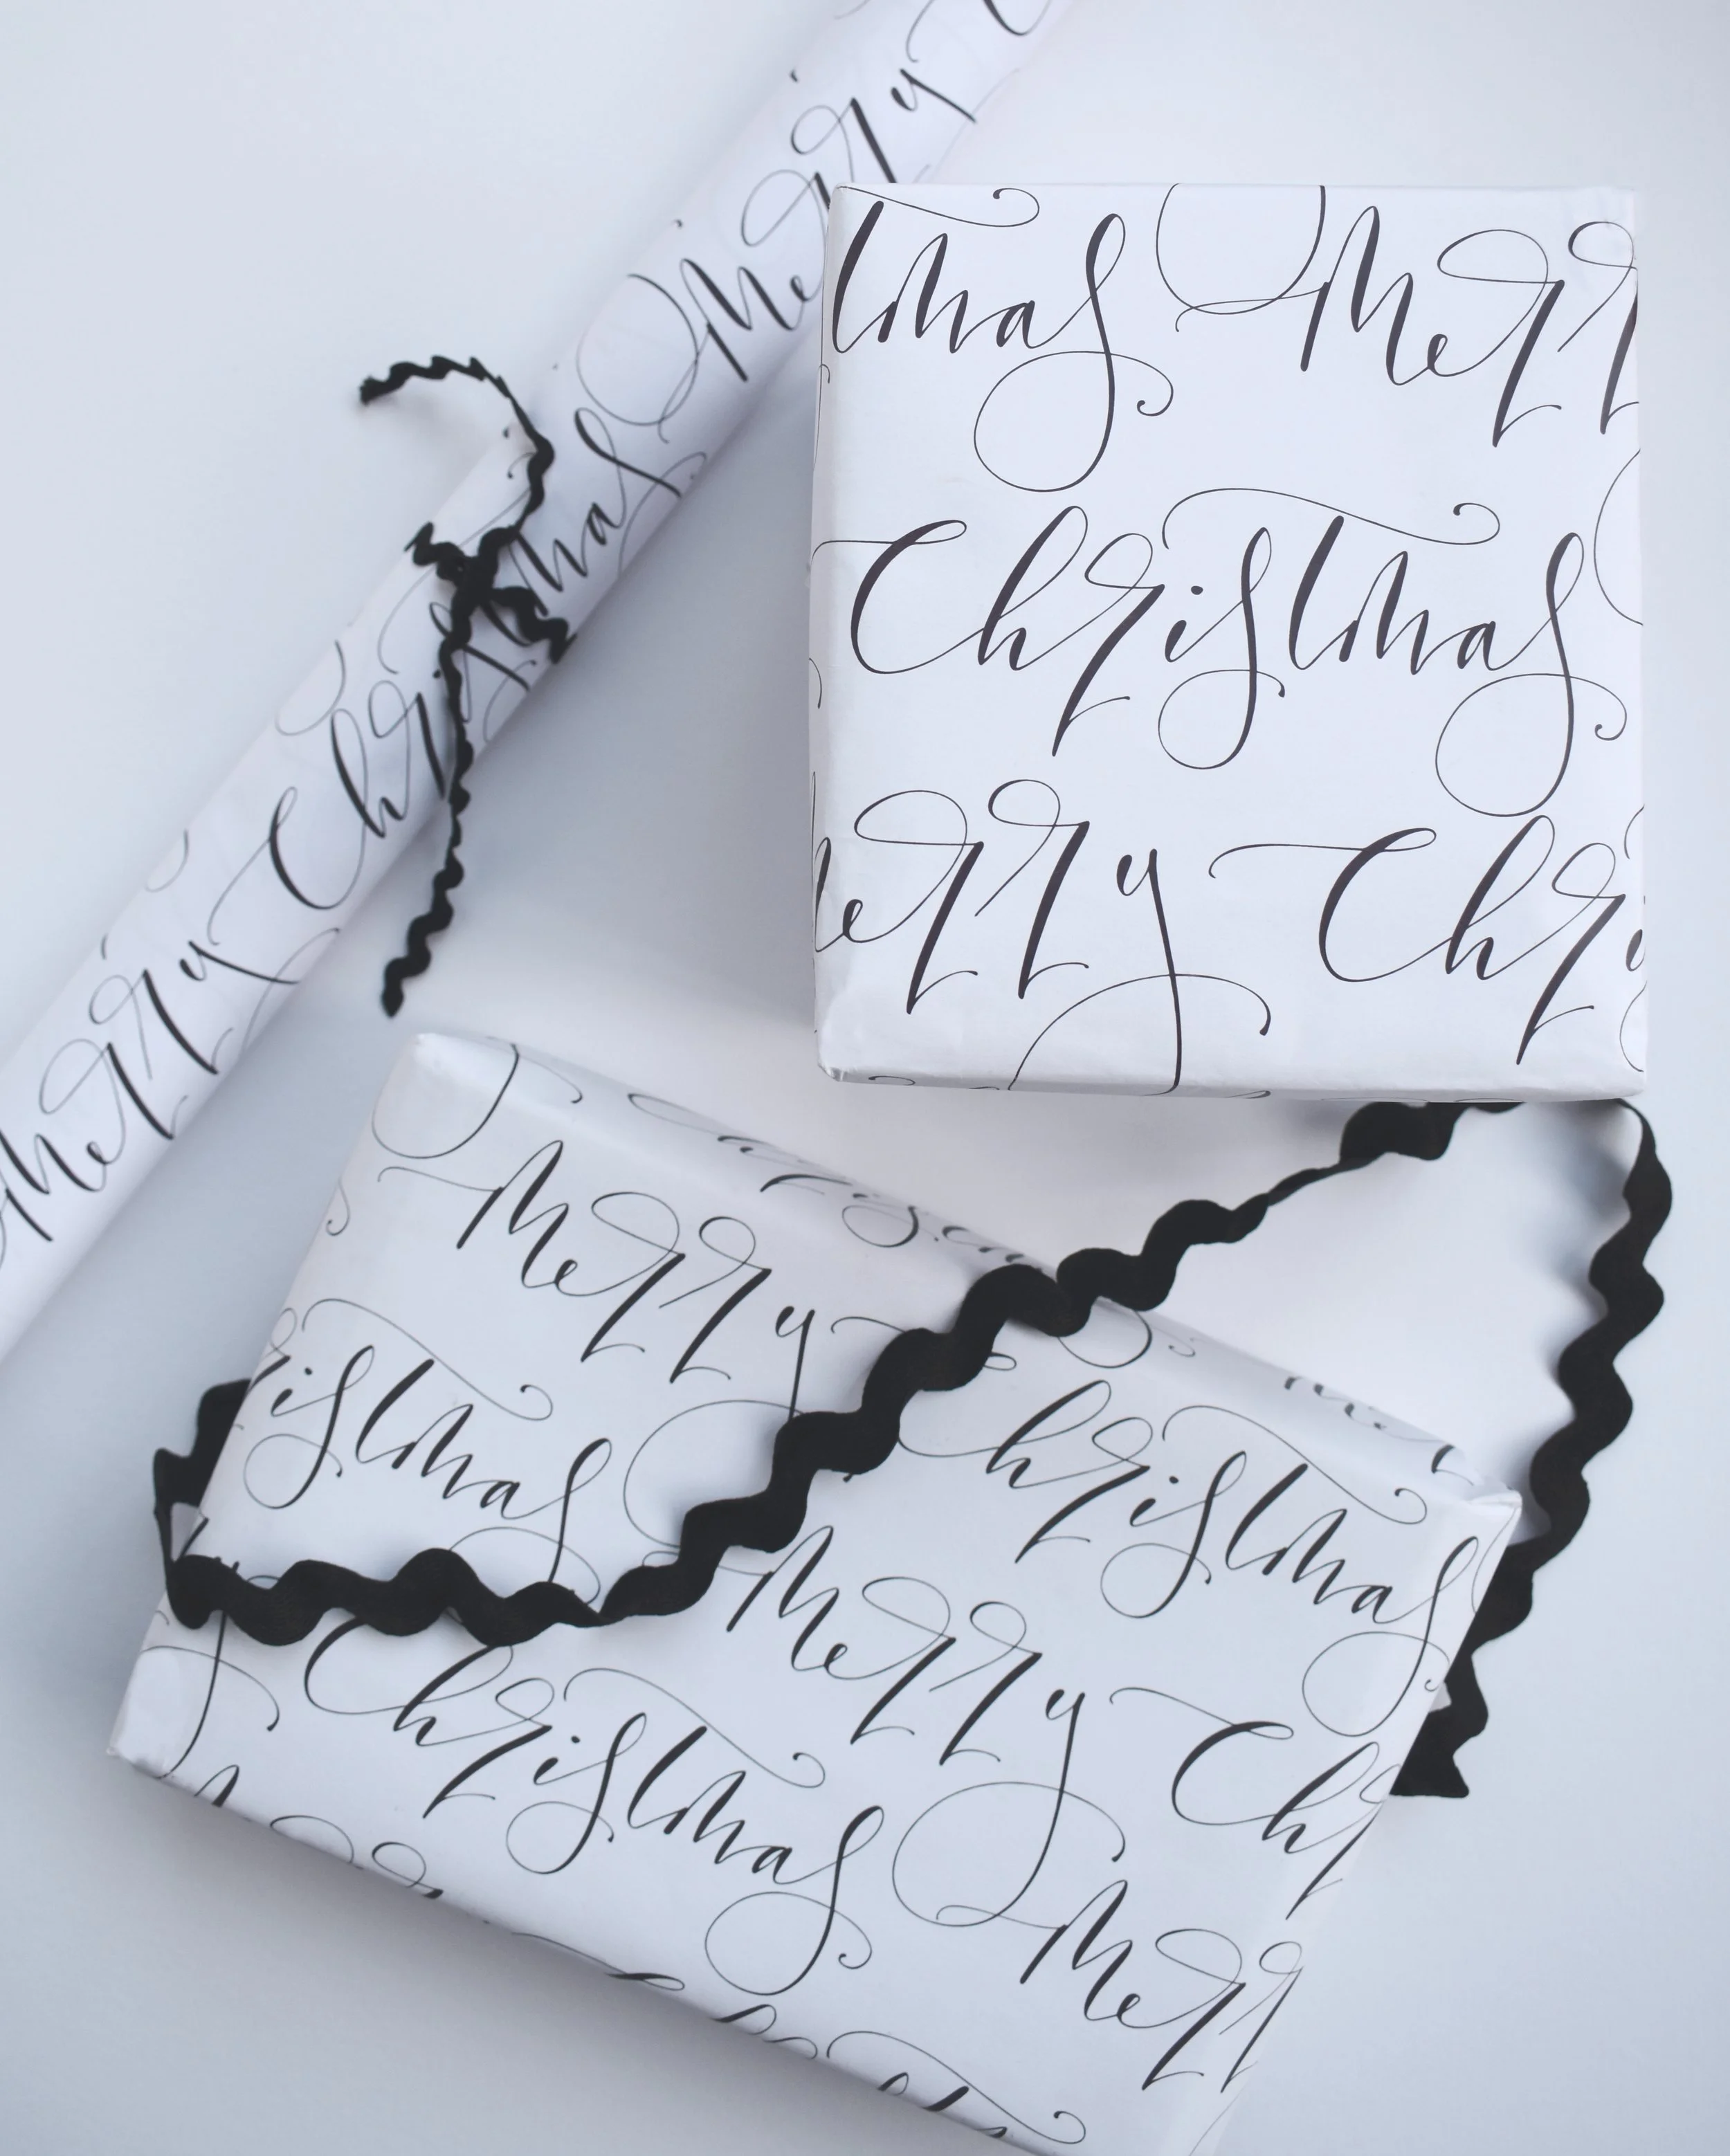 Merry
Christmas
Merry
tmas Merr
Christmas
erry Chri
Merry
istmas Christmas
Merry
Christmas Ch
Merr